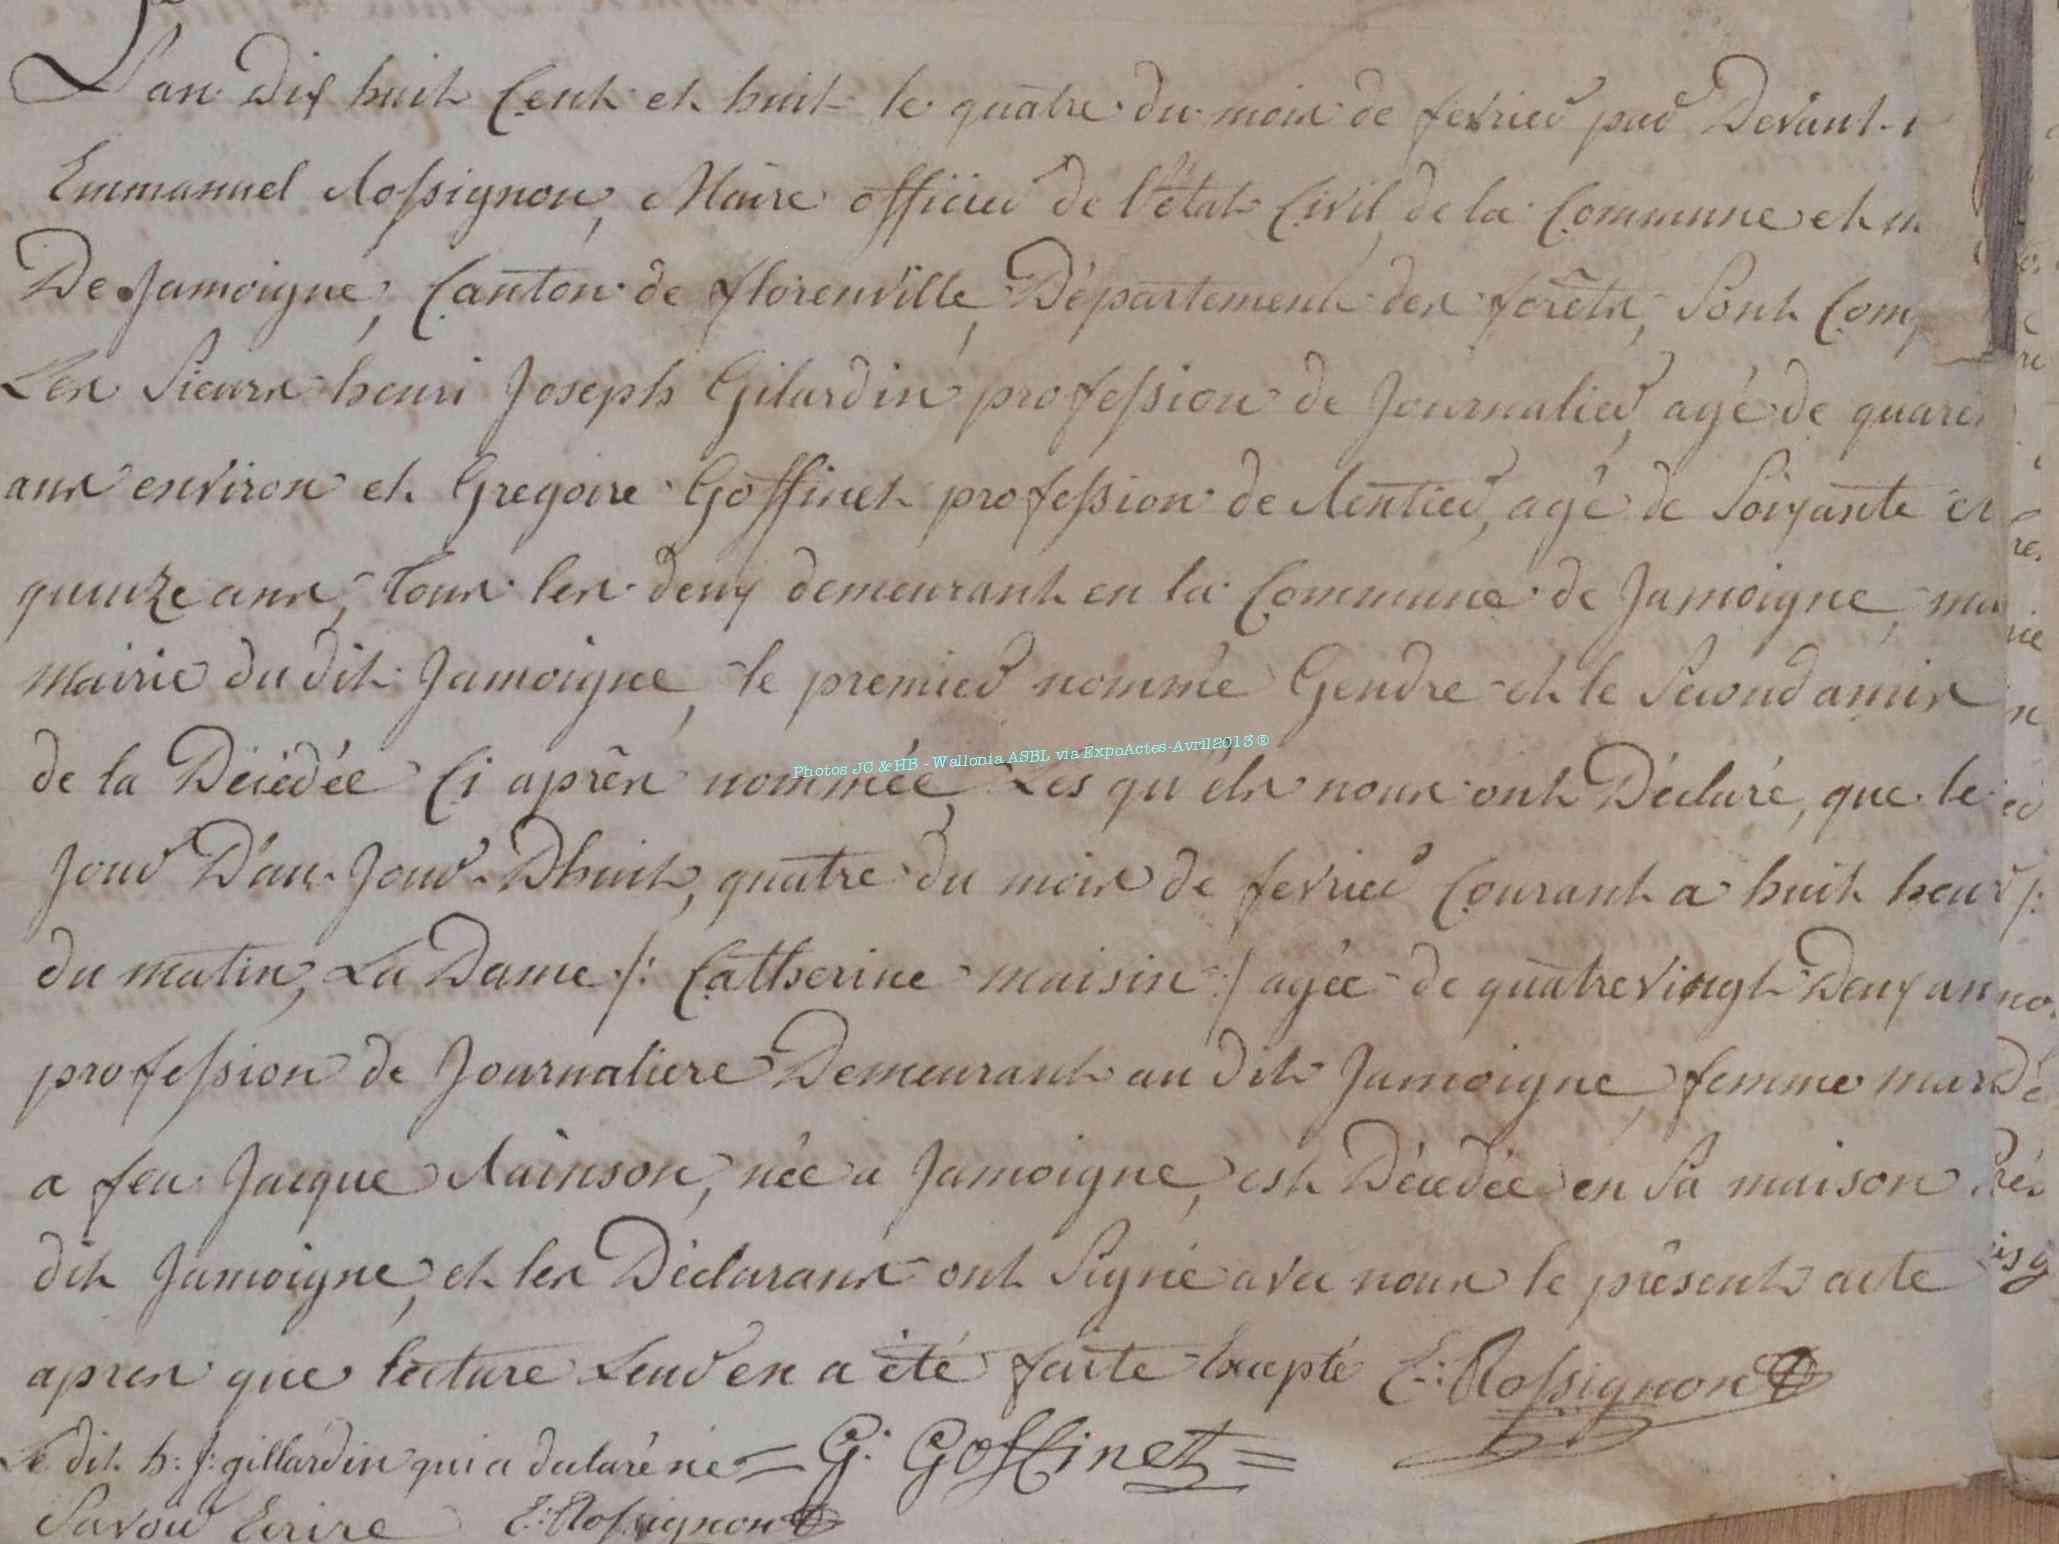 L'an Dix huit Cent et huit le quatre du mois de fevrier par Devant
Emmanuel Rossignon, Maire officier de l'état Civil, de la Commune et
De Jamoigne, Canton de florenville, Département des forêts, Sont Comp
Les Sieurs henri Joseph Gilardin profession de Journalier, agé de quare
ans environ et Gregoire Goffinet profession de Rentier, agé de Soixante et
quinze ans, Tous les deux demeurant en la Commune de Jamoigne, ma
mairie du dit Jamoigne, le premier nommé Gendre et le Second amis
de la Décédée Ci après nommée, Les qu'els nous ont Déclaré, que le
Jour D'au-Jour-Dhuit, quatre du mois de fevrier Courant a huit heur
du matin, La Dame /: Catherine maisin :/ agée de quatre vingt Deux an
profession de Journaliere Demeurant au dit Jamoigne, femme mar
a feu Jacque Rainson, née a Jamoigne, est Décedée en Sa maison
dit Jamoigne, et les Déclarans ont Signé avec nous le présent acte
apres que lecture Leur en a été faite Excepté E: Rossignon
Le dit h: j: gillardin qui a declaré ne = G: Goffinet =
Savoir Ecrire E: Rossignon
Photos JC & HB - Wallonia ASBL via ExpoActes-Avril2013 ®